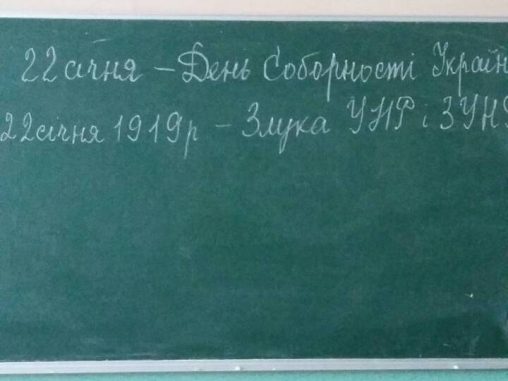 22 січня – День Соборності Україн
22 січня 1919 р – Злука УНР і ЗУНР